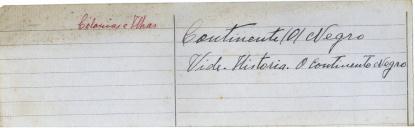 Colonias e Ilhas
Continente (O) Negro
Vide - Historia. O Continente Negro